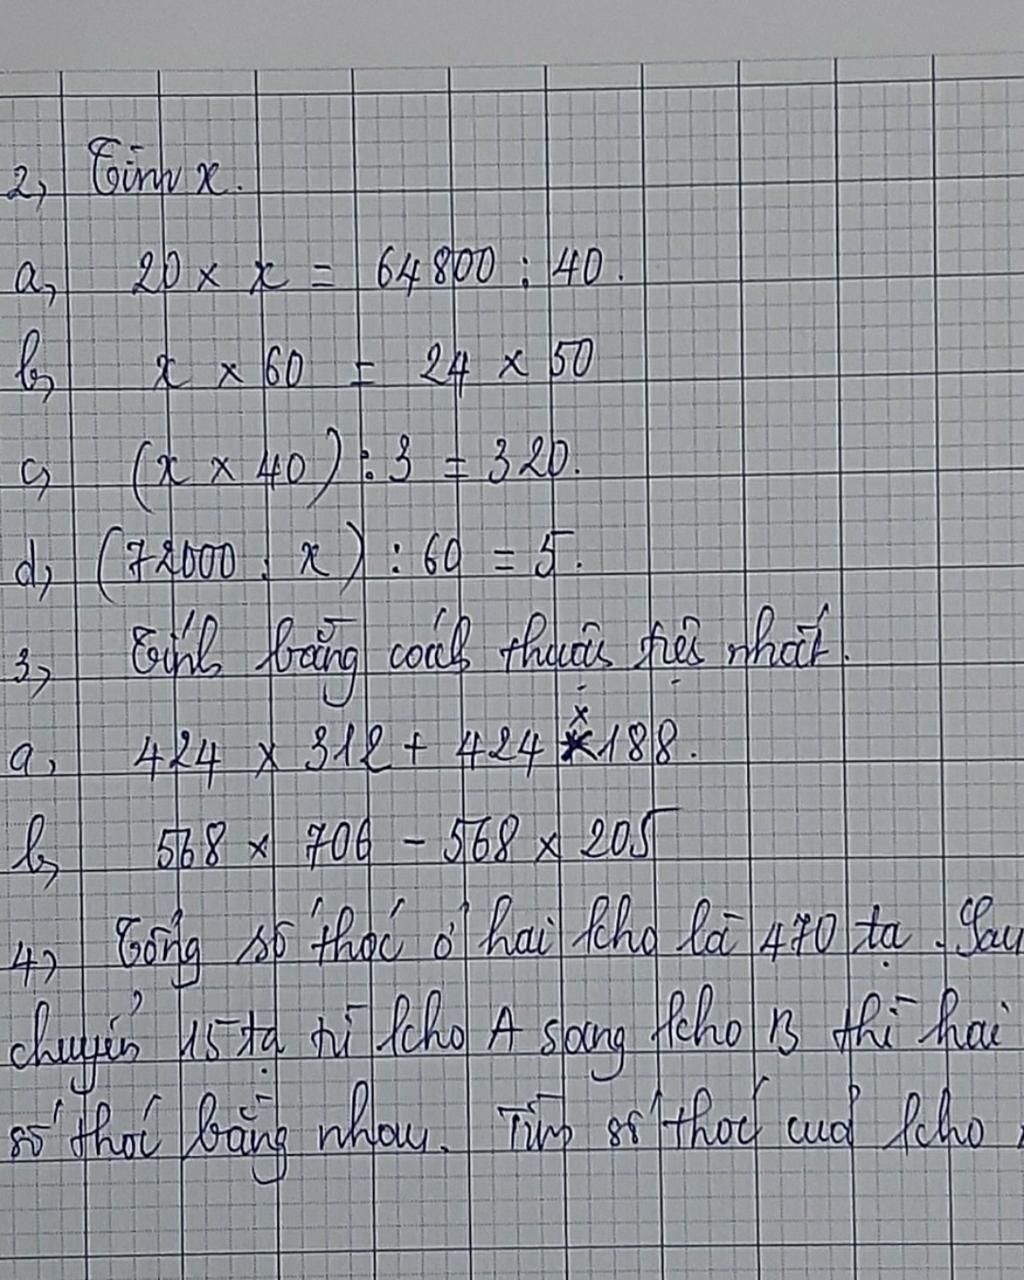 2, Tìm x.
a, 20 × x = 64800 : 40.
b, x × 60 = 24 × 50
c, (x × 40) : 3 = 320.
d, (72000 : x) : 60 = 5.
3, Tính bằng cách thuận tiện nhất.
a, 424 × 312 + 424 × 188.
b, 568 × 706 - 568 × 205
4, Tổng số thóc ở hai kho là 470 tạ. Sau
chuyển 15 tạ từ kho A sang kho B thì hai
số thóc bằng nhau. Tìm số thóc của kho